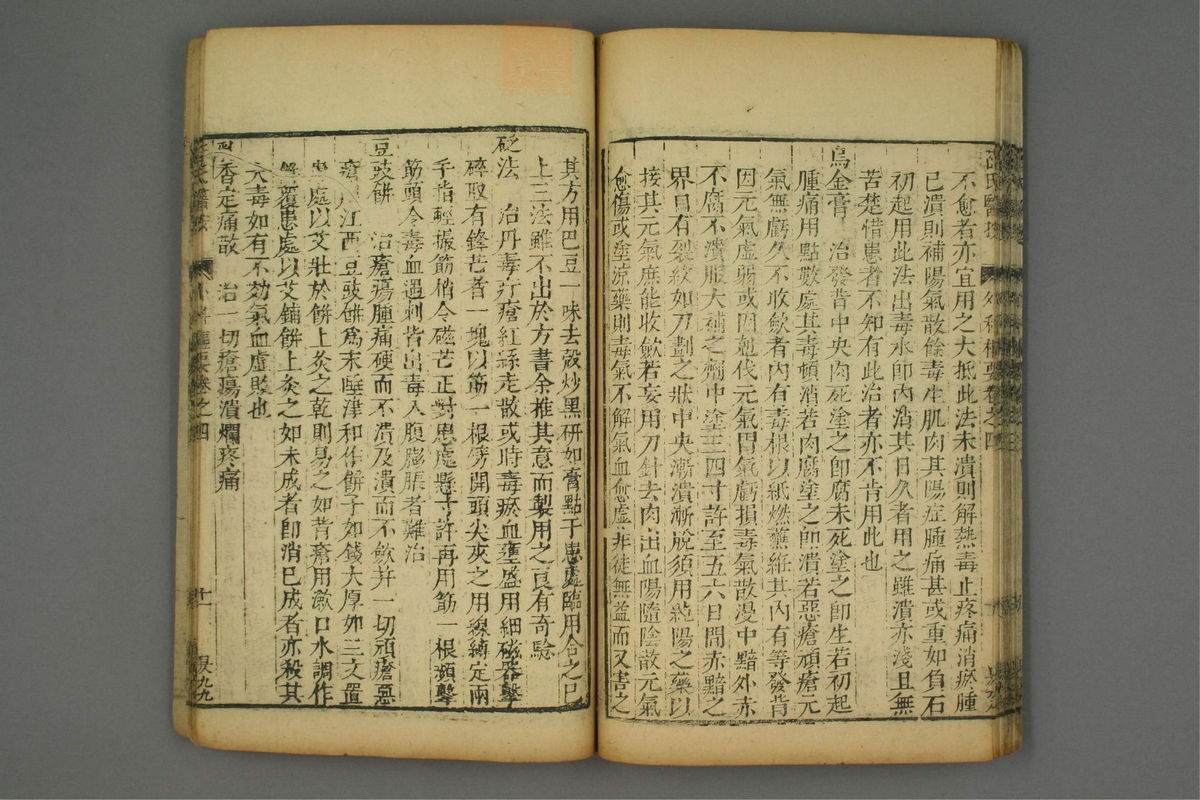 不愈者亦宜用之大抵此法未潰則解熱毒止疼痛消瘀腫
已潰則補陽氣散餘毒生肌肉其陽症腫痛甚或重如負石
初起用此法出毒水即內消其日久者用之雖潰亦淺且無
苦楚惜患者不知有此治者亦不肯用此也
烏金膏 治發背中央肉死塗之即腐未死塗之即生若初起
腫痛用點數處其毒頓消若肉腐塗之即潰若惡瘡頑瘡元
氣無虧久不收歛者內有毒根以紙燃蘸紝其內有等發背
因元氣虛弱或因剋伐元氣胃氣虧損毒氣散漫中黯外赤
不腐不潰服大補之劑中塗三四寸許至五六日間赤黯之
界自有裂紋如刀劃之狀中央漸潰漸脫須用純陽之藥以
接其元氣庶能收歛若妄用刀針去肉出血陽隨陰散元氣
愈傷或塗凉藥則毒氣不解氣血愈虛非徒無益而又害之
其方用巴豆一味去殼炒黑研如膏點于患處臨用合之巳
上三法雖不出於方書余推其意而製用之良有奇驗
砭法 治丹毒疔瘡紅絲走散或時毒瘀血壅盛用細磁器擊
碎取有鋒芒者一塊以筋一根劈開頭尖夾之用線縛定兩
手指輕撮筋梢令磁芒正對患處懸寸許再用筋一根頻擊
筋頭令毒血遇刺皆出毒入腹膨脹者難治
豆豉餅 治瘡瘍腫痛硬而不潰及潰而不歛并一切頑瘡惡
瘡 江西豆豉餅為末唾津和作餅子如錢大厚如三文置
患處以艾壯於餅上灸之乾則易之如背瘡用漱口水調作
餅覆患處以艾鋪餅上灸之如未成者即消已成者亦殺其
大毒如有不効氣血虛敗也
四香定痛散 治一切瘡瘍潰爛疼痛
外科樞要卷之四
十一